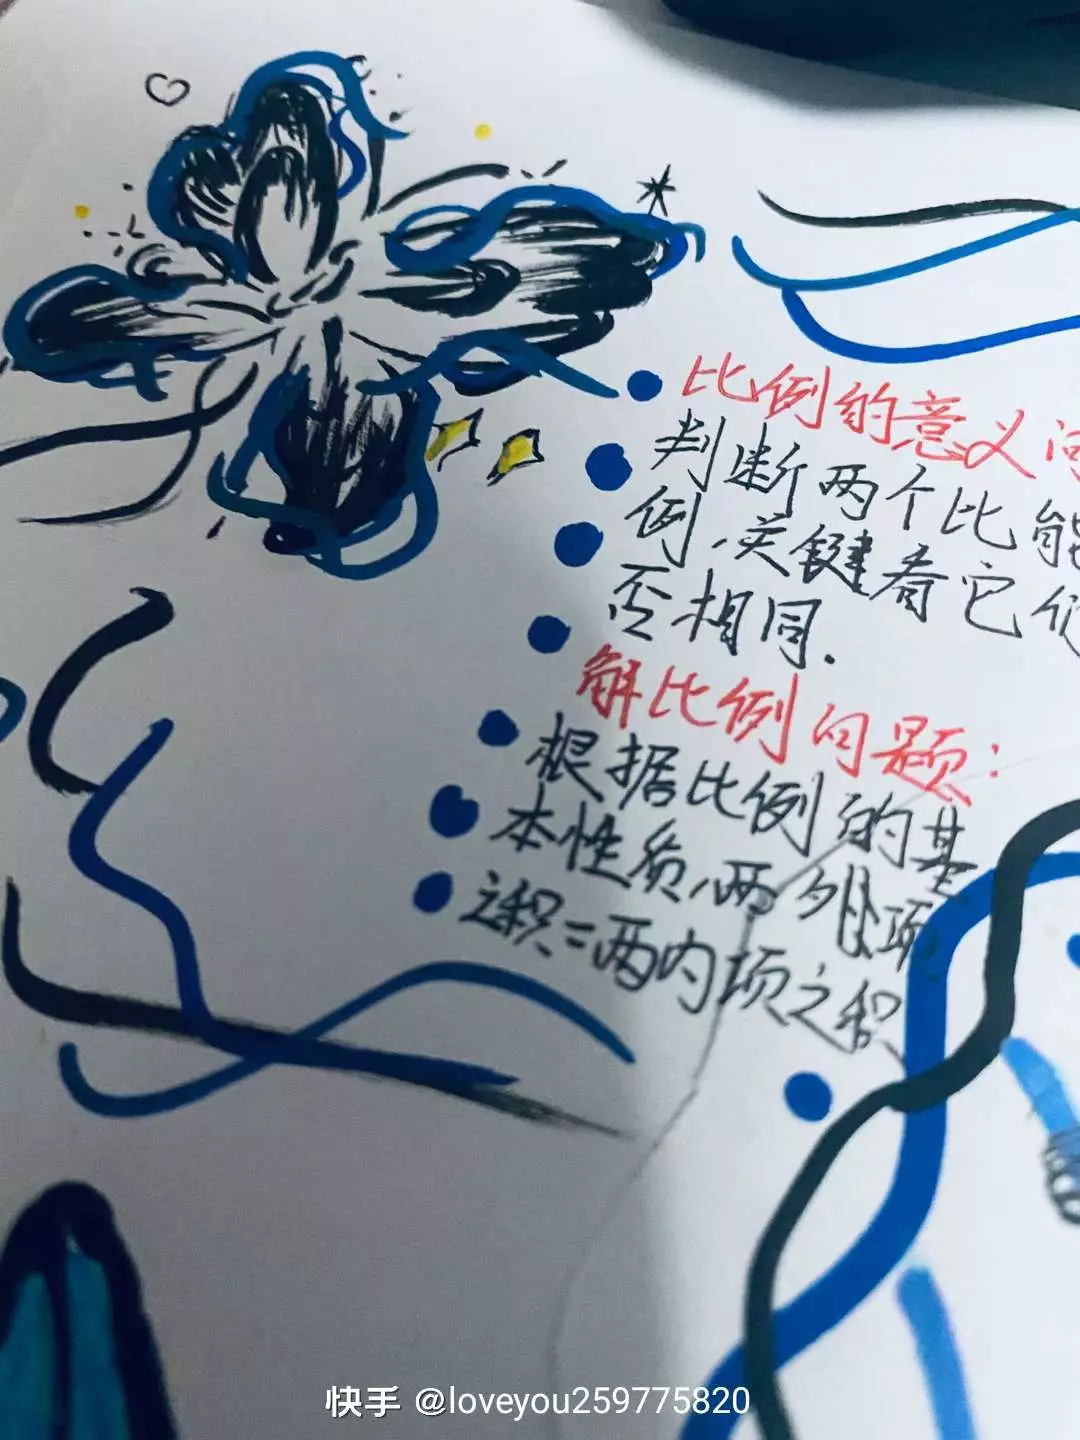 比例的意义问
判断两个比能
例,关键看它们
否相同.
解比例问题:
根据比例的基
本性质,两外项
之积=两内项之积
快手 @loveyou259775820